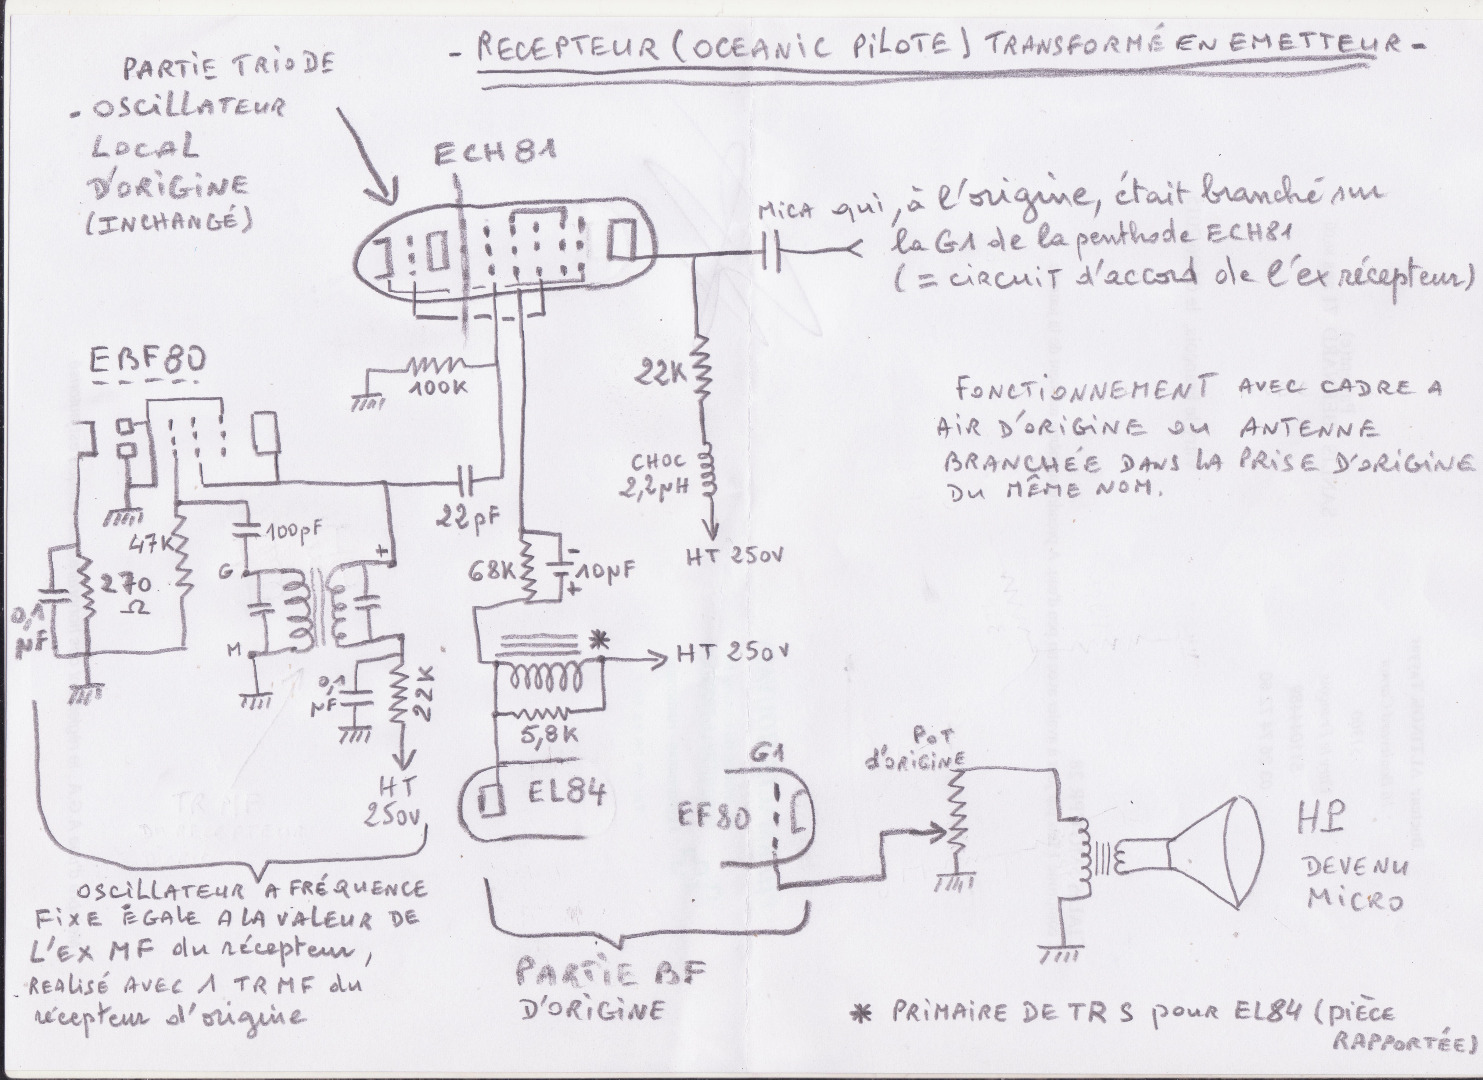 - RECEPTEUR (OCEANIC PILOTE) TRANSFORMÉ EN EMETTEUR -
PARTIE TRIODE
- OSCILLATEUR
LOCAL
D'ORIGINE
(INCHANGÉ)
ECH81
MICA qui, à l'origine, était branché sur
la G1 de la penthode ECH81
(= CIRCUIT d'accord de l'ex récepteur)
FONCTIONNEMENT AVEC CADRE A
AIR D'ORIGINE OU ANTENNE
BRANCHÉE DANS LA PRISE D'ORIGINE
DU MÊME NOM.
EBF80
100K
22K
CHOC
2,2µH
HT 250V
22pF
47K
100pF
270
Ω
0,1
µF
G
M
+
0,1
µF
22K
HT
250V
68K
-
10µF
+
*
HT 250V
5,8K
EL84
G1
EF80
POT
d'origine
HP
DEVENU
MICRO
OSCILLATEUR A FRÉQUENCE
FIXE ÉGALE A LA VALEUR DE
L'EX MF du récepteur,
REALISÉ AVEC 1 TRMF du
récepteur d'origine
PARTIE BF
D'ORIGINE
* PRIMAIRE DE TRS pour EL84 (PIÈCE
RAPPORTÉE)